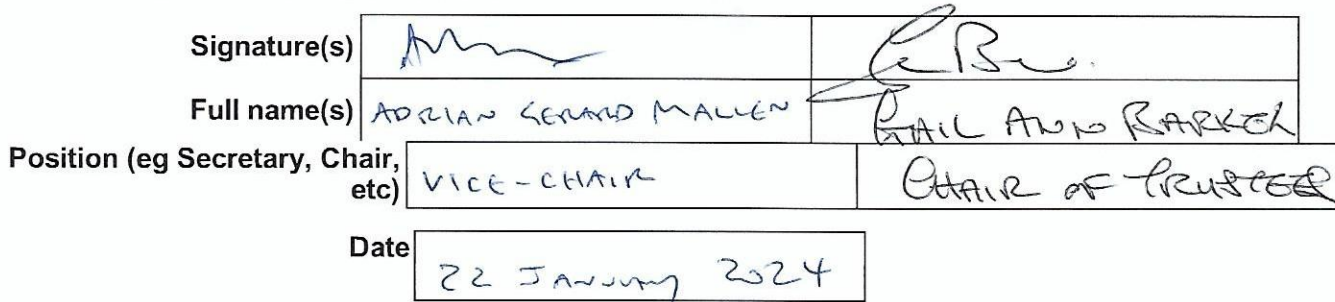 Signature(s)
Full name(s) ADRIAN GERARD MALLEN GAIL ANN BARKER
Position (eg Secretary, Chair, etc) VICE-CHAIR CHAIR OF TRUSTEES
Date 22 JANUARY 2024